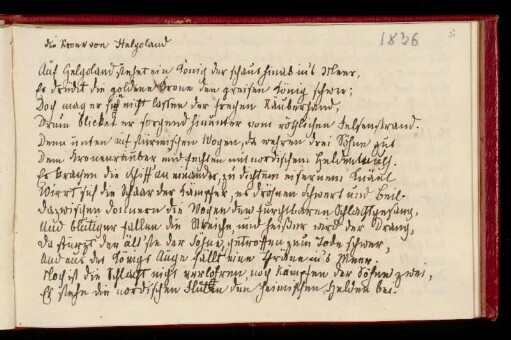 Die Krone von Helgoland
1836
Auf Helgoland stehet ein König der schaut hinab in's Meer,
Es drückt die goldene Krone den greisen König schwer;
Doch mag er sie nicht lassen der frechen Räuberhand,
Drum blicket er sorgend hinunter vom röthlichen Felsenstrand.
Denn unten auf stürmischen Wogen, da wehren drei Söhne gut
Dem Kronenräuber und fechten mit nordischem Heldenmuth.
Es krachen die Schiff an einander, zu dichtem eisernem Knäul
Wirrt sich die Schaar der Kämpfer, es dröhnen Schwert und Beil.
Dazwischen donnern die Wogen den furchtbaren Schlachtgesang,
Und blutiger fallen die Streiche, und heißer wird der Drang,
Da stürzt der ält'ste der Söhne, getroffen zum Tode schwer,
Und aus des Königs Auge fällt eine Thräne in's Meer.
Noch ist die Schlacht nicht verloren, noch kämpfen der Söhne zwei,
Es stehn die nordischen Fluthen den heimischen Helden bei.